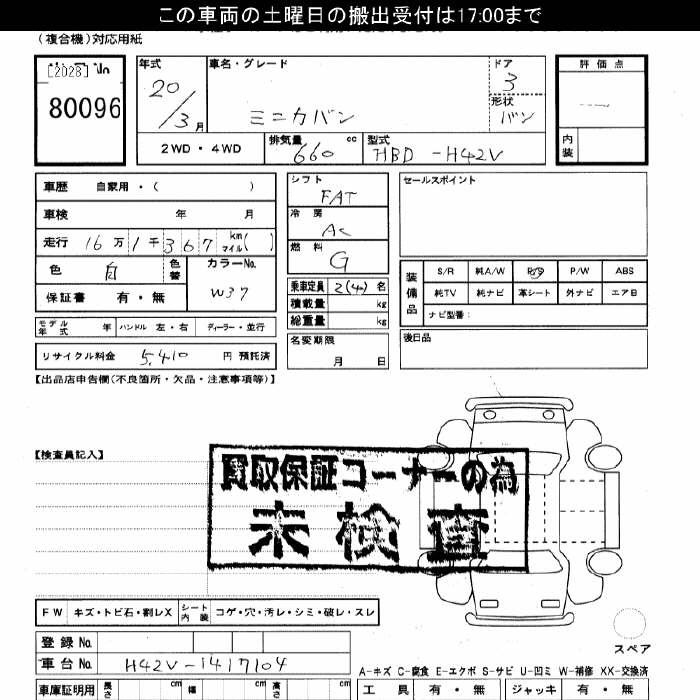 この車両の土曜日の搬出受付は17:00まで
(複合機)対応用紙
[2028]
80096
年式
20/3月
車名・グレード
ミニカバン
ドア
3
形状
バン
評価点
内装
2WD・4WD
排気量
660 cc
型式
HBD-H42V
車歴 自家用・( )
車検 年 月
走行 16万1千367 km マイル( )
色 白 色替
カラーNo. W37
保証書 有・無
モデル年式 年 ハンドル 左・右 ディーラー・並行
リサイクル料金 5,410 円 預託済
シフト
FAT
冷房
AC
燃料
G
乗車定員 2(4) 名
積載量 kg
総重量 kg
名変期限
月 日
セールスポイント
装備品
S/R 純A/W P/S P/W ABS
純TV 純ナビ 革シート 外ナビ エアB
ナビ型番:
後日品
【出品店申告欄(不良箇所・欠品・注意事項等)】
【検査員記入】
買取保証コーナーの為
未検査
FW キズ・トビ石・割レX シート内装 コゲ・穴・汚レ・シミ・破レ・スレ
スペア
登録No.
車台No. H42V-1417104
A-キズ C-腐食 E-エクボ S-サビ U-凹ミ W-補修 XX-交換済
車庫証明用 長さ cm 幅 cm 高さ cm
工具 有・無 ジャッキ 有・無